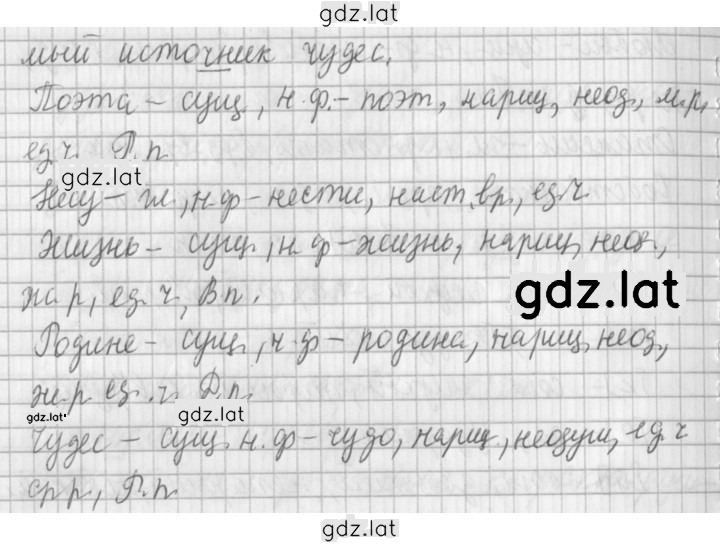 gdz.lat
мый источник чудес.
Поэта – сущ, н.ф. – поэт, нариц, неод, м.р,
ед.ч. Р.п.
gdz.lat
Несу – гл, н.ф – нести, наст.вр, ед.ч
Жизнь – сущ, н.ф – жизнь, нариц, неод,
gdz.lat
ж.р, ед.ч, В.п.
Родине – сущ, н.ф – родина, нариц, неод,
ж.р ед.ч. Д.п.
gdz.lat gdz.lat
Чудес – сущ. н.ф – чудо, нариц, неодуш, ед.ч
ср р, Р.п
gdz.lat